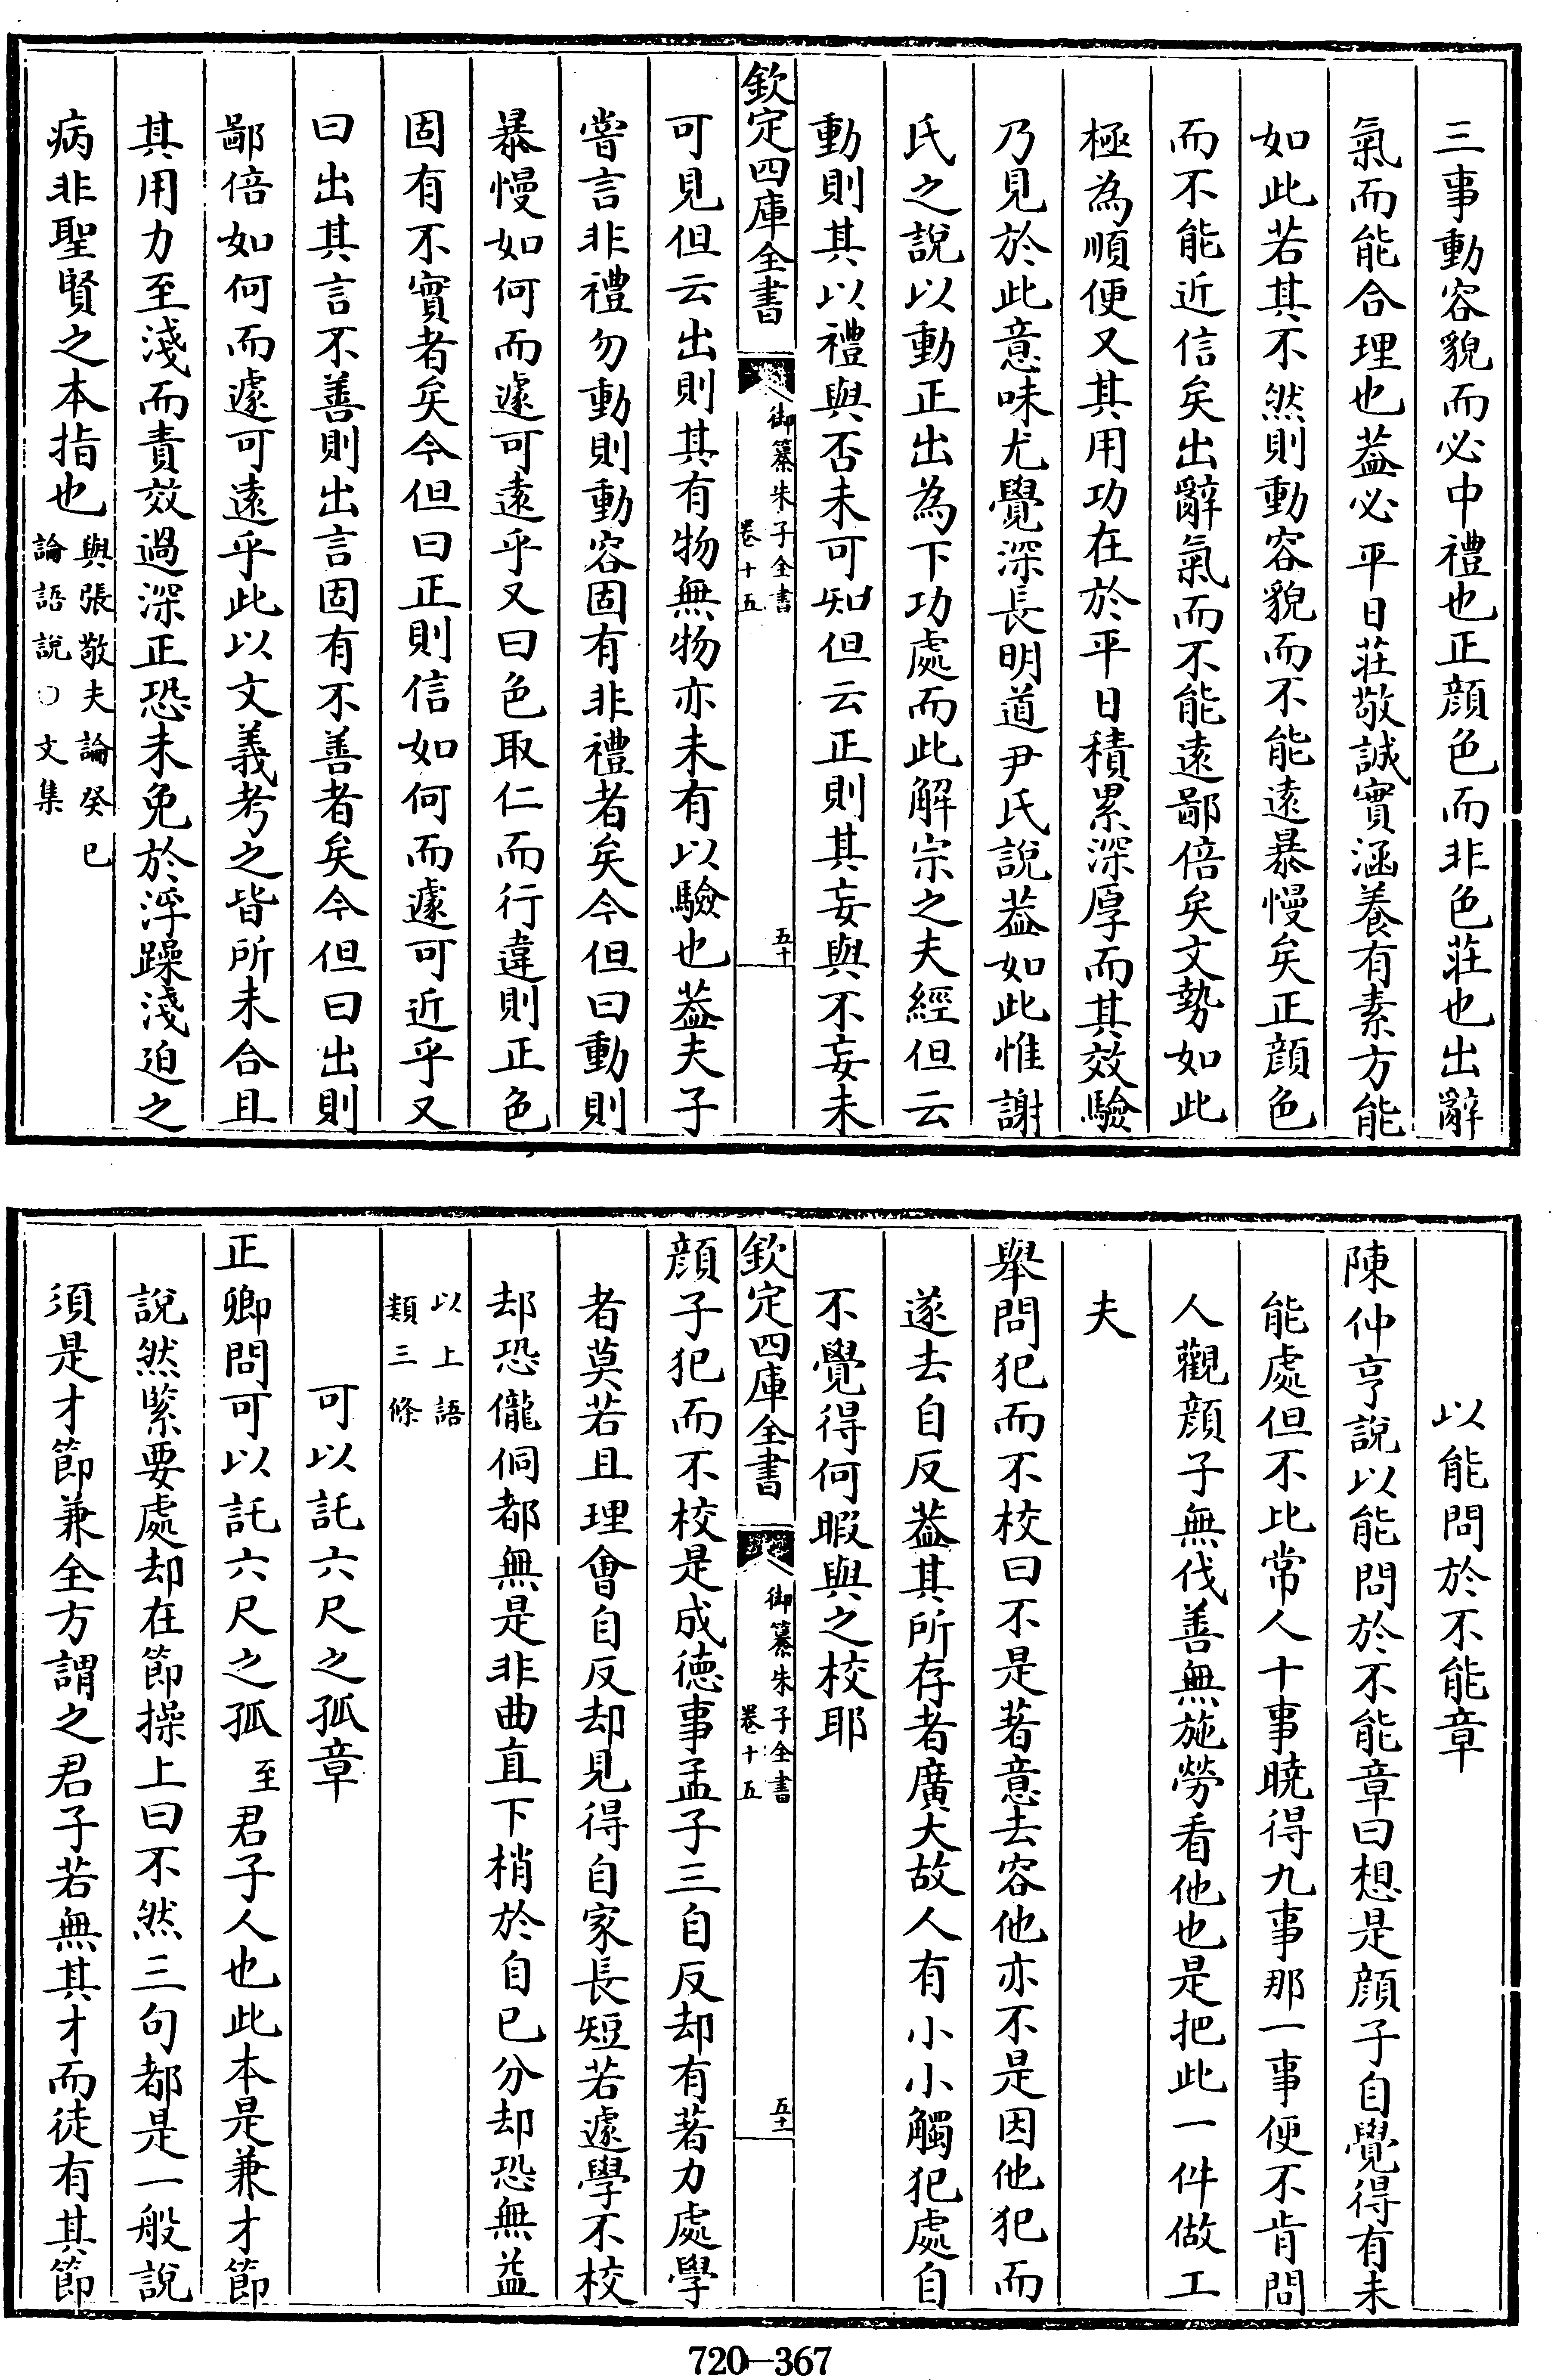 三事動容貌而必中禮也正顔色而非色莊也出辭
氣而能合理也葢必平日莊敬誠實涵養有素方能
如此若其不然則動容貌而不能遠暴慢矣正顔色
而不能近信矣出辭氣而不能遠鄙倍矣文勢如此
極為順便又其用功在於平日積累深厚而其效驗
乃見於此意味尤覺深長明道尹氏說葢如此惟謝
氏之說以動正出為下功處而此解宗之夫經但云
動則其以禮與否未可知但云正則其妄與不妄未
欽定四庫全書
御纂朱子全書
卷十五
五十
可見但云出則其有物無物亦未有以驗也葢夫子
嘗言非禮勿動則動容固有非禮者矣今但曰動則
暴慢如何而遽可遠乎又曰色取仁而行違則正色
固有不實者矣今但曰正則信如何而遽可近乎又
曰出其言不善則出言固有不善者矣今但曰出則
鄙倍如何而遽可遠乎此以文義考之皆所未合且
其用力至淺而責效過深正恐未免於浮躁淺迫之
病非聖賢之本指也與張敬夫論癸巳
論語說○文集
以能問於不能章
陳仲亨說以能問於不能章曰想是顔子自覺得有未
能處但不比常人十事曉得九事那一事便不肯問
人觀顔子無伐善無施勞看他也是把此一件做工
夫
舉問犯而不校曰不是著意去容他亦不是因他犯而
遂去自反葢其所存者廣大故人有小小觸犯處自
不覺得何暇與之校耶
欽定四庫全書
御纂朱子全書
卷十五
五十一
顔子犯而不校是成徳事孟子三自反却有著力處學
者莫若且理會自反却見得自家長短若遽學不校
却恐儱侗都無是非曲直下梢於自已分却恐無益
以上語
類三條
可以託六尺之孤章
正卿問可以託六尺之孤至君子人也此本是兼才節
說然緊要處却在節操上曰不然三句都是一般說
須是才節兼全方謂之君子若無其才而徒有其節
720—367